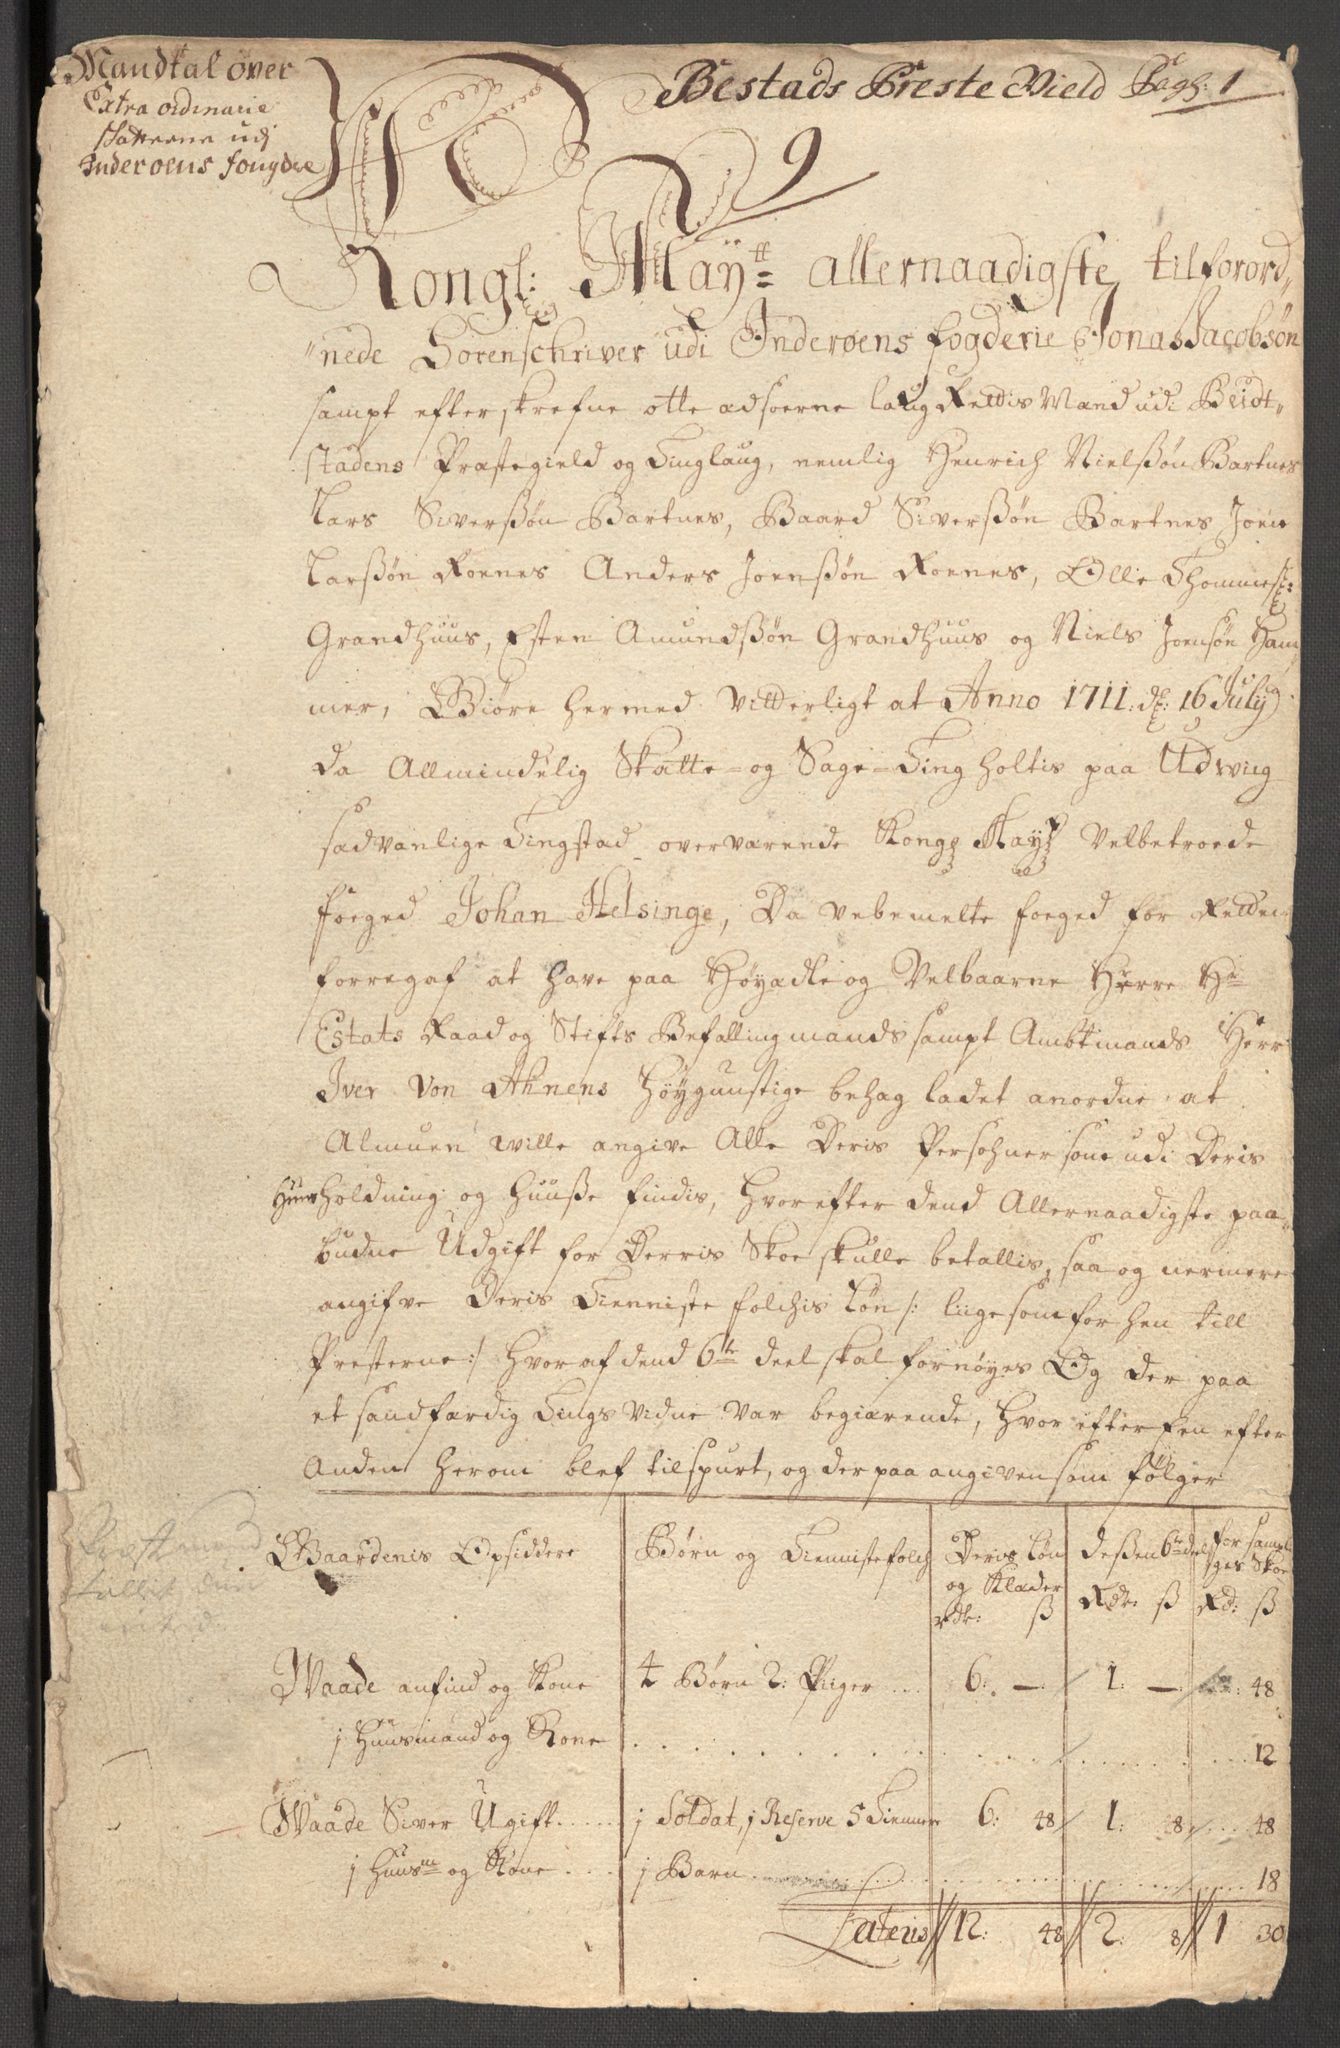 Mandtal over
Extra ordinarie
skatterne udj
Inderoens fougderie
Bestads Preste Gield Pagh: 1
N 9
Kongl: Mayᵗᵗ= allernaadigste tilforord„
„nede Sorenschriver udi Inderoens fogderie Jonas Jacobsøn
sampt efterskrefne otte adsoerne laug Rettis Mænd udi Beidt„
stadens Præstegield og Tinglaug, nemlig Henrich Nielssøn Bartnes
Lars Siverssøn Bartnes, Baard Siverssøn Bartnes Joen
Larssøn Roenes Anders Joenssøn Roenes, Olle Thommes:
Grandhuus, Esten Amundssøn Grandhuus og Niels Joensøn Ham
mer, Giøre hermed Vitterligt at Anno 1711. d: 16 July
da Allmindelig Skatte= og Sage=Ting holtis paa Udvüg
sædvanlige Tingstad overværende Kong Mayᵗ Velbetroede
foeged Johan Helsinge, Da vebemelte foeged for Retten
forregaf at have paa Høyædle og Velbaarne Herre Hr
Estats Raad og Stifts Befallingmands sampt Ambtmands Herr
Iver Von Ahnens Høygunstige behag ladet anordne at
Almuen wille angive Alle Deris Persohner som udi Deris
Huusholdning og Huusse findis, hvorefter dend Allernaadigste paa„
budne Udgift for Derris Skoe skulle betallis, saa og nermere
angifve Deris Tienniste folchis Løn /: liigesom for hen till
Presterne :/ hvor af dend 6te deel skal fornøyes Og der paa
et sandfærdig Tings Vidne var begiærende, hvor efter Een efter
Anden herom blef tilspurt, og der paa angiven som følger
Gaardenis Opsiddere Børn og Tiennistefolch Deris Løn og Klæder rdr: ß dessen 6te del Rdr: ß for samptl iges Skoe Rd: ß
Waade anfind og Kone 4 Børn 2: Piiger ... 6: — 1: — 48
j Huusmand og Kone ... 12
Waade Siver Ugift ..... j Soldat, j Reserve 5 Tiennere 6: 48 1: 8 .... 48
j Huusm og Kone .... j Barn ... 18
Lateris 12: 48 2: 8 1 30